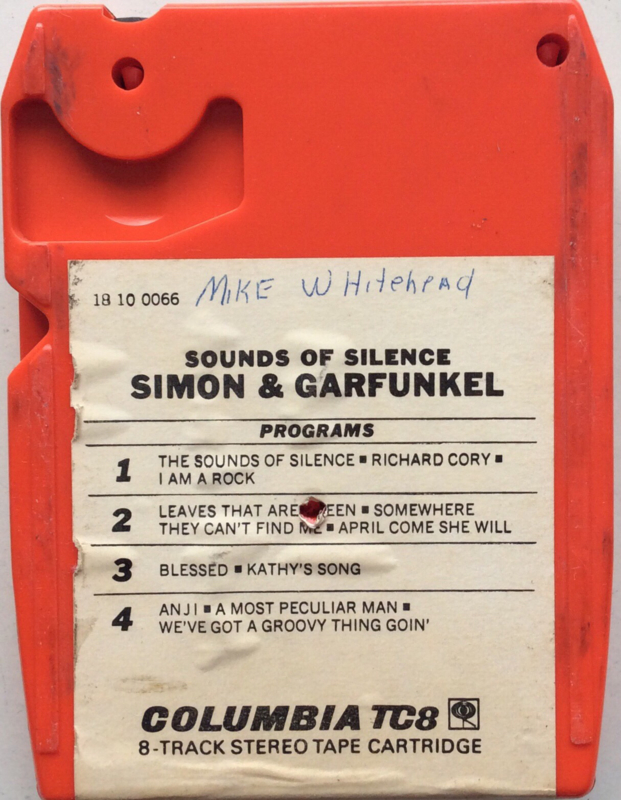 18 10 0066 Mike Whitehead
SOUNDS OF SILENCE
SIMON & GARFUNKEL
PROGRAMS
1 THE SOUNDS OF SILENCE ■ RICHARD CORY ■
I AM A ROCK
2 LEAVES THAT ARE EEN ■ SOMEWHERE
THEY CAN'T FIND ME ■ APRIL COME SHE WILL
3 BLESSED ■ KATHY'S SONG
4 ANJI ■ A MOST PECULIAR MAN ■
WE'VE GOT A GROOVY THING GOIN'
COLUMBIA TC8
8-TRACK STEREO TAPE CARTRIDGE